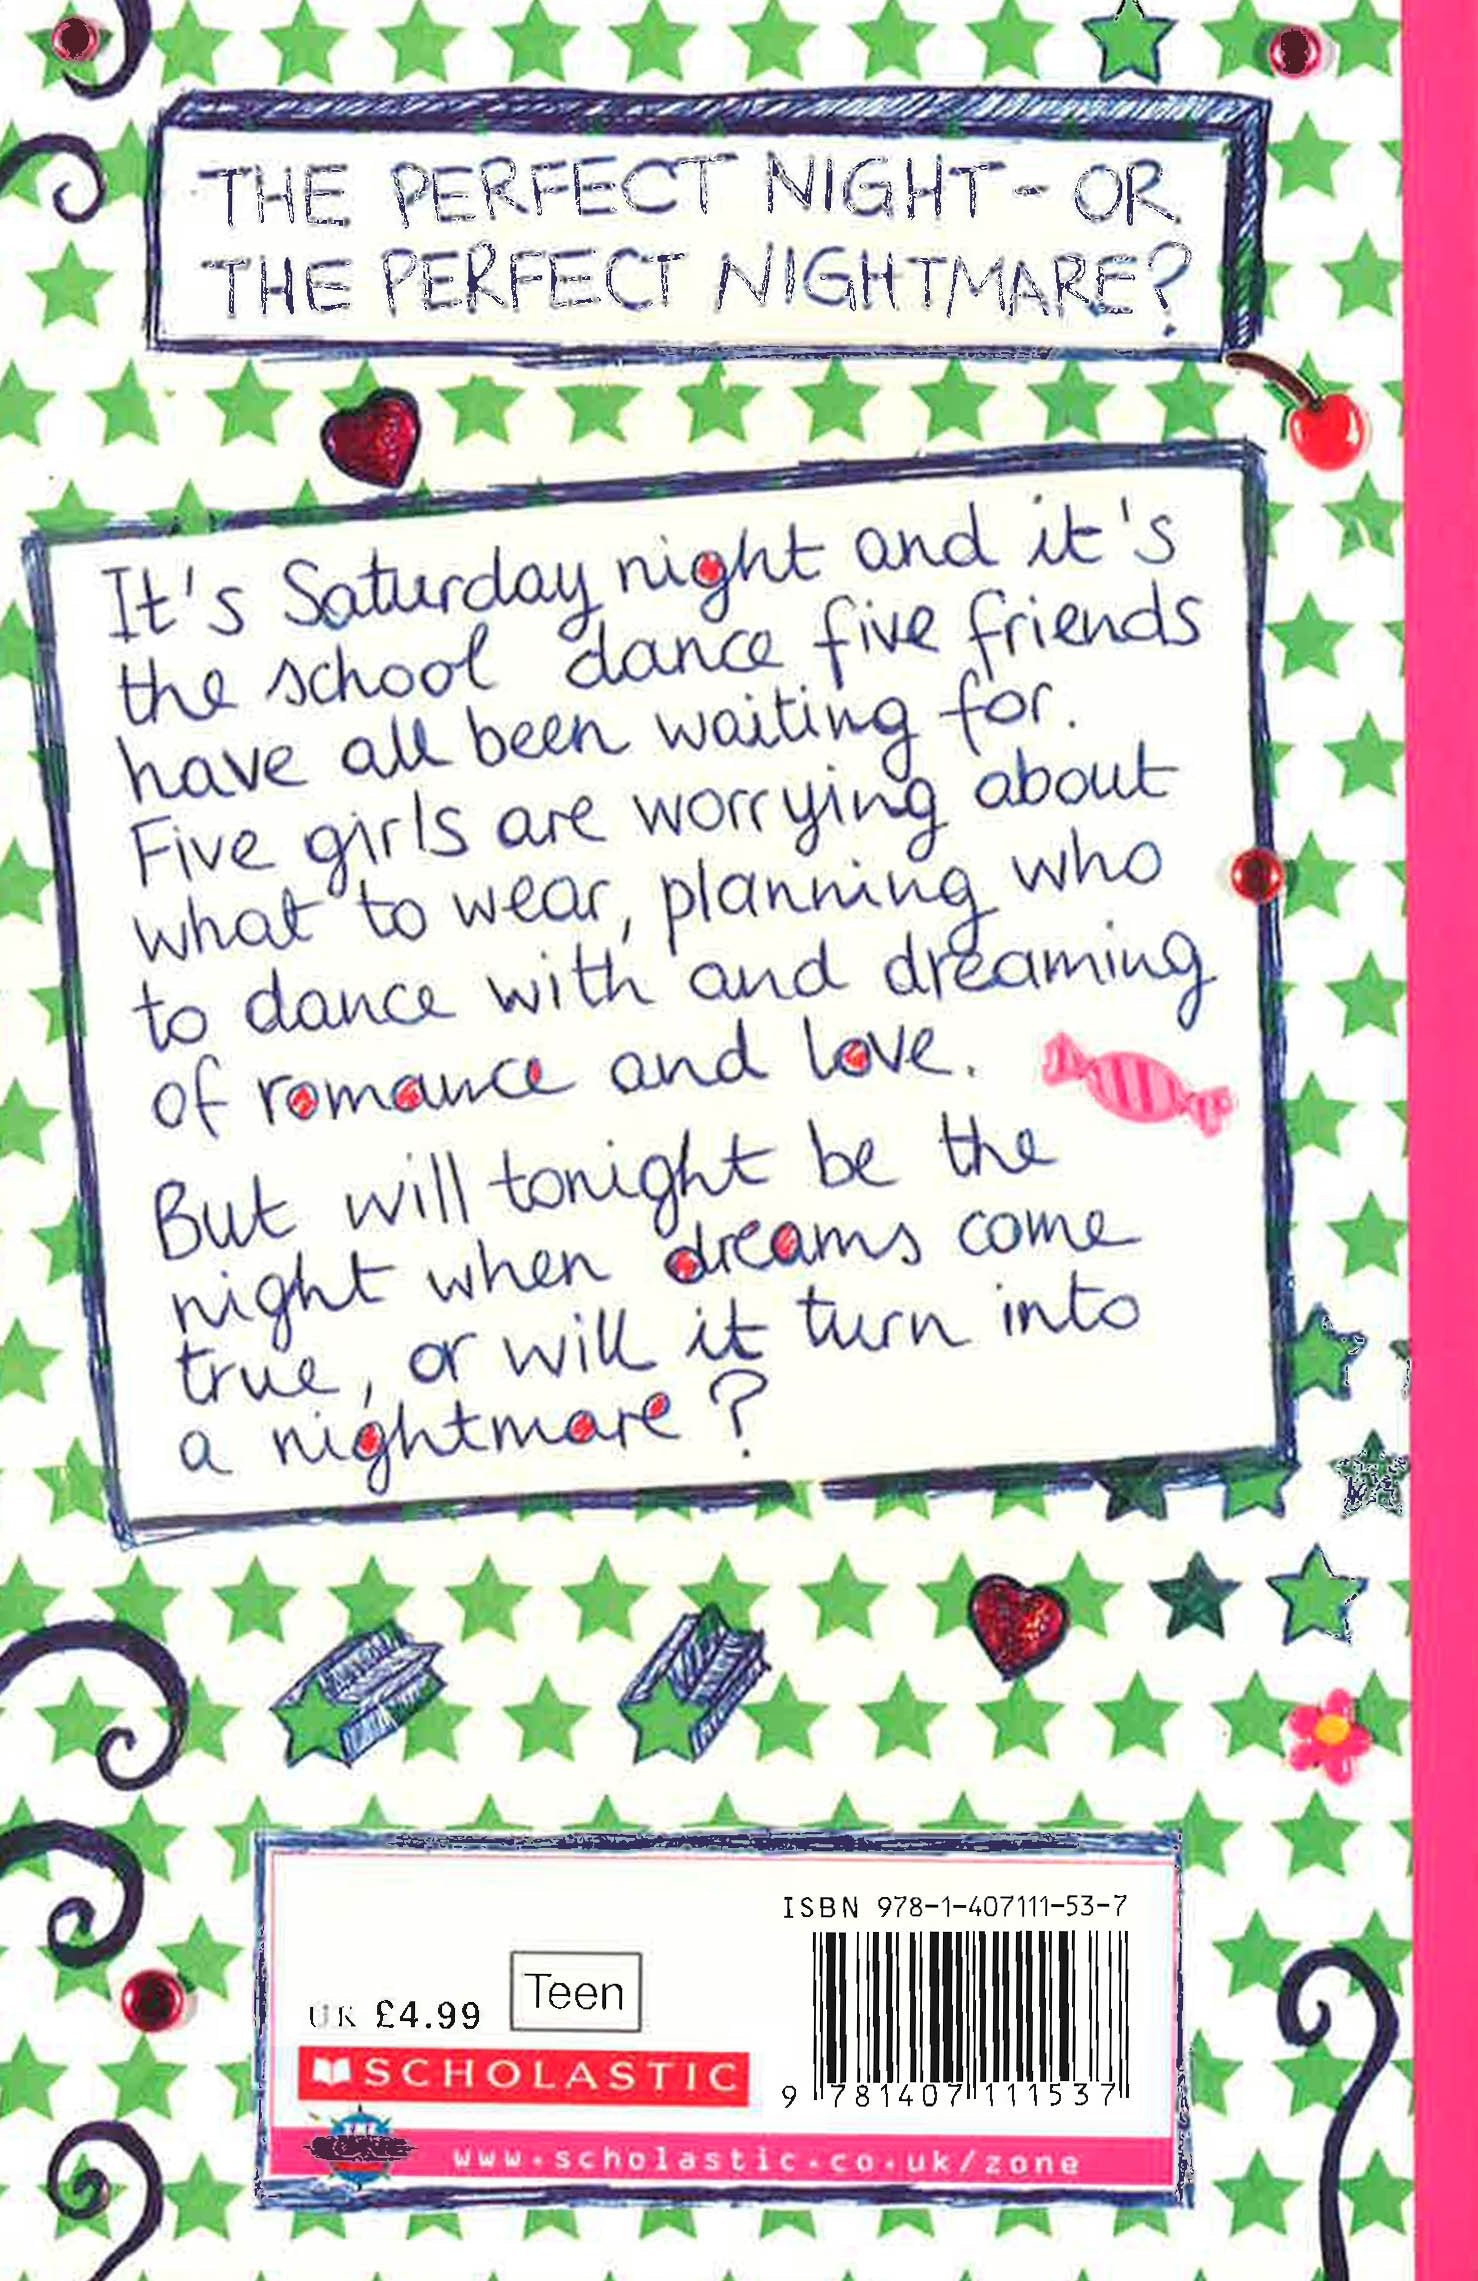 THE PERFECT NIGHT - OR
THE PERFECT NIGHTMARE?
It's Saturday night and it's
the school dance five friends
have all been waiting for.
Five girls are worrying about
what to wear, planning who
to dance with and dreaming
of romance and love.
But will tonight be the
night when dreams come
true, or will it turn into
a nightmare?
ISBN 978-1-407111-53-7
UK £4.99
Teen
SCHOLASTIC
9 781407 111537
www.scholastic.co.uk/zone